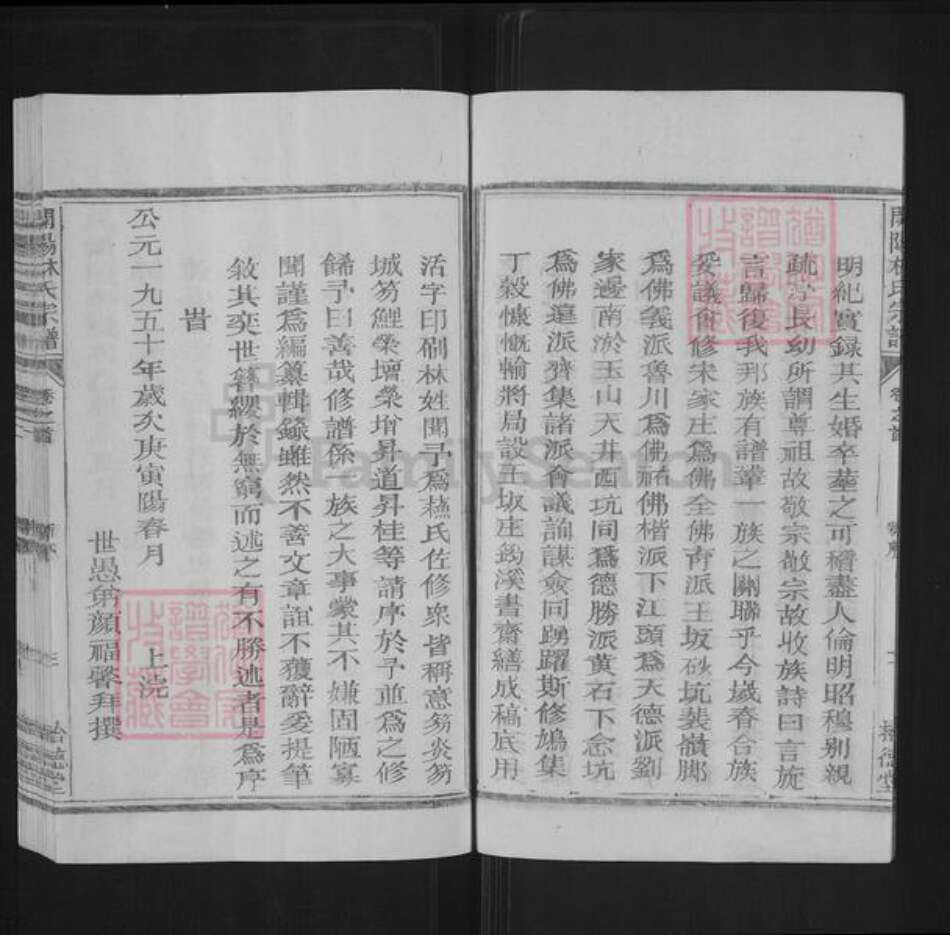 明紀實錄其生婚卒葬之可稽盡人倫明昭穆別親
疏序長幼所謂尊祖故敬宗敬宗故收族詩曰言旋
言歸復我邦族有譜牽一族之關聯乎今歲春合族
妥議會修宋家庄為佛全佛育派王坂砍坑裝嶺腳
為佛義派魯川為佛祐佛楷派下江頭為天德派劉
家邊南淤玉山大井西坑同為德勝派黄石下念坑
為佛達派齊集諸派會議謀僉同踴躍斯修鳩集
丁穀慷慨輸將局設五坂庄鈎溪書齋繕成稿底用
活字印刷林姓聞予為蘇氏佐修衆皆稱意笏炎笏
城笏鯉榮增榮增昇道昇桂等請序於予並為之修
餙予曰善哉修譜係一族之大事蒙其不嫌固陋寡
聞謹為編纂輯錄雖然不善文章誼不獲辭爰提筆
敘其奕世簪纓於無窮而述之有不勝述者是為序
旹
公元一九五十年歲次庚寅陽春月 上浣
世愚弟顏福馨拜撰
林氏宗譜
卷之首
FamilySearch